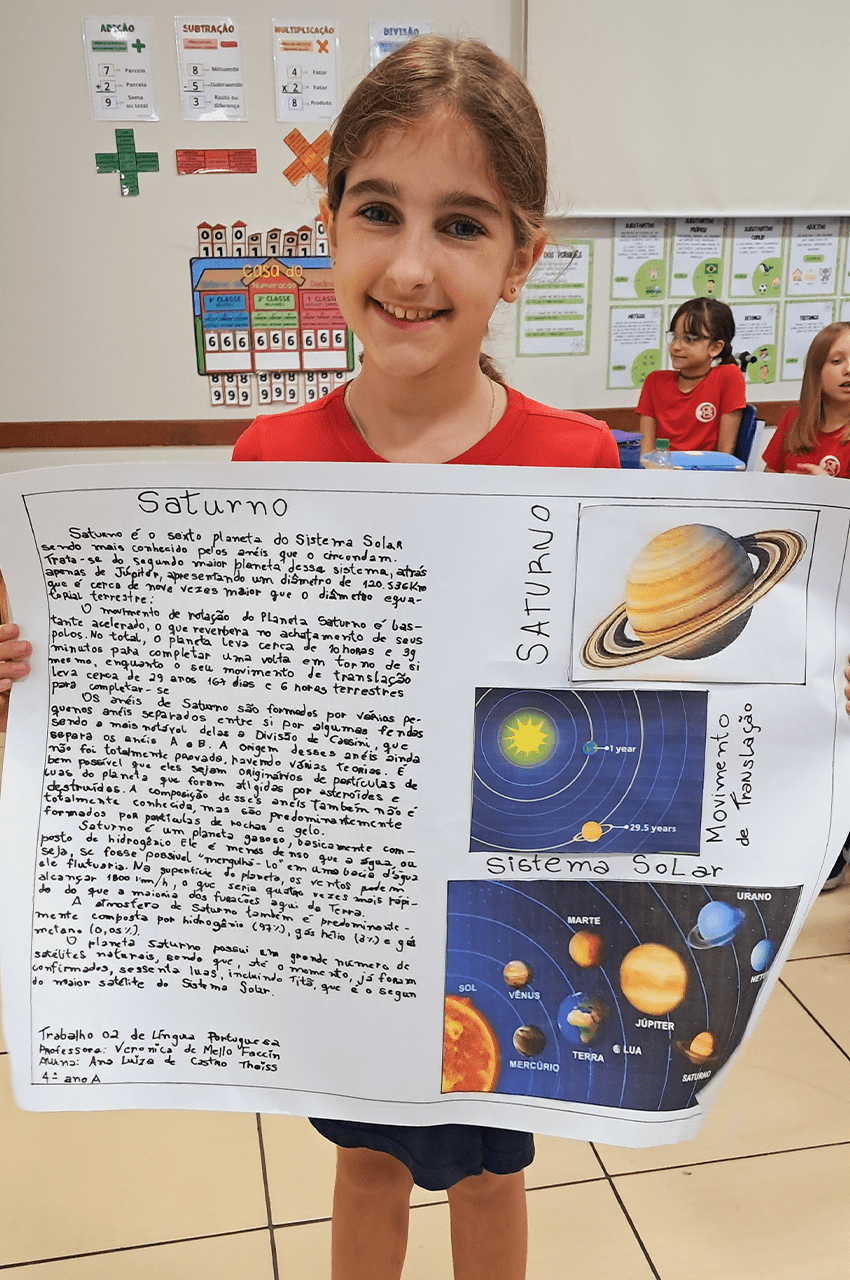 ADIÇÃO
7 Parcela
+ 2 Parcela
9 Soma ou total
SUBTRAÇÃO
8 Minuendo
- 5 Subtraendo
3 Resto ou diferença
MULTIPLICAÇÃO
4 Fator
x 2 Fator
8 Produto
DIVISÃO
Casa da
Numeração
3ª CLASSE
2ª CLASSE
1ª CLASSE
6 6 6 6 6 6 6 6 6
SUBSTANTIVO
SUBSTANTIVO
PRÓPRIO
SUBSTANTIVO
COMUM
ADJETIVO
Saturno
Saturno é o sexto planeta do Sistema Solar
sendo mais conhecido pelos anéis que o circundam.
Trata-se do segundo maior planeta desse sistema, atrás
apenas de Júpiter, apresentando um diâmetro de 120.536 Km
que é cerca de nove vezes maior que o diâmetro equa-
torial terrestre.
O movimento de rotação do Planeta Saturno é bas-
tante acelerado, o que reverbera no achatamento de seus
polos. No total, o planeta leva cerca de 10 horas e 39
minutos para completar uma volta em torno de si
mesmo, enquanto o seu movimento de translação
leva cerca de 29 anos 167 dias e 6 horas terrestres
para completar-se
Os anéis de Saturno são formados por vários pe-
quenos anéis separados entre si por algumas fendas
sendo a mais notável delas a Divisão de Cassini, que
separa os anéis A e B. A origem desses anéis ainda
não foi totalmente provada, havendo várias teorias. É
bem possível que eles sejam originários de partículas de
luas do planeta que foram atigidas por asteroides e
destruídos. A composição desses anéis também não é
totalmente conhecida, mas são predominantemente
formados por partículas de rochas e gelo.
Saturno é um planeta gasoso, basicamente com-
posto de hidrogênio Ele é menos denso que a água, ou
seja, se fosse possível "mergulhá-lo" em uma bacia d'água
ele flutuaria. Na superfície do planeta, os ventos podem
alcançar 1800 Km/h, o que seria quatro vezes mais rápi-
do do que a maioria dos furacões aqui da Terra.
A atmosfera de Saturno também é predominante-
mente composta por hidrogênio (97%), gás hélio (2%) e gás
metano (0,05%).
O planeta Saturno possui em grande número de
satélites naturais, sendo que, até o momento, já foram
confirmados, sessenta luas, incluindo Titã, que é o segun
do maior satélite do Sistema Solar.
Trabalho 02 de Língua Portuguesa
Professora: Veronica de Mello Faccin
Aluna: Ana Luiza de Castro Theiss
4º ano A
SATURNO
1 year
29.5 years
Movimento
de Translação
Sistema Solar
URANO
MARTE
SOL
VÊNUS
JÚPITER
MERCÚRIO
TERRA
LUA
SATURNO